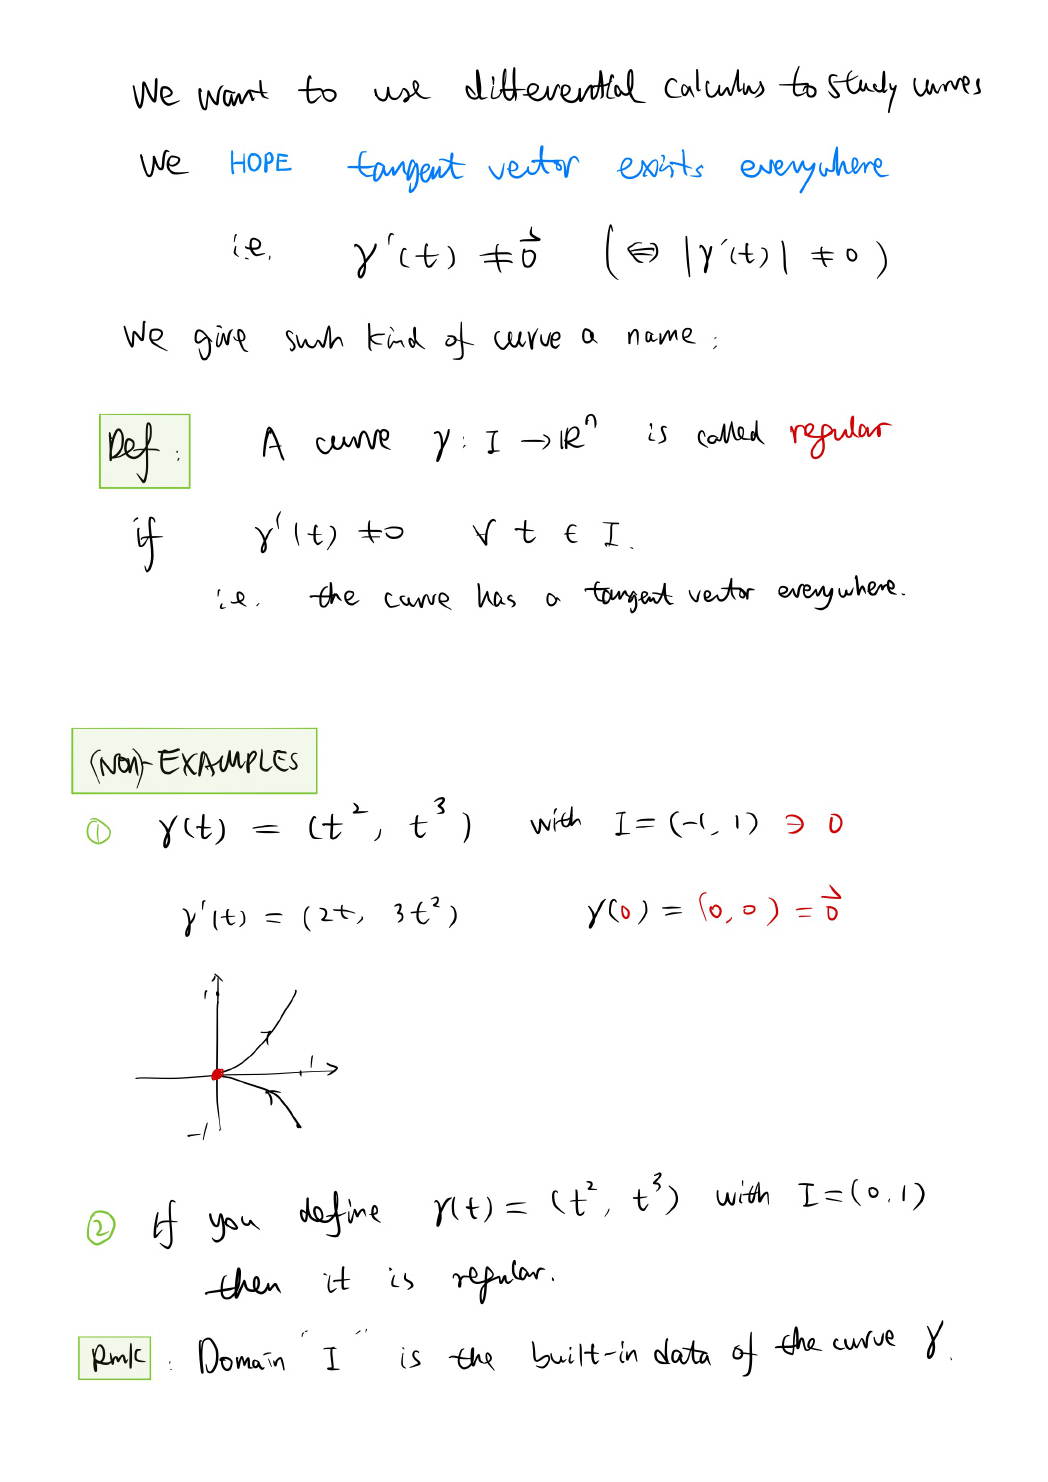 We want to use differential calculus to study curves
We HOPE tangent vector exists everywhere
i.e. γ'(t) ≠ 0⃗ (⇔ |γ'(t)| ≠ 0)
We give such kind of curve a name:
Def: A curve γ: I → ℝⁿ is called regular
if γ'(t) ≠ 0 ∀ t ∈ I.
i.e. the curve has a tangent vector everywhere.
(NON)-EXAMPLES
① γ(t) = (t², t³) with I = (-1, 1) ∋ 0
γ'(t) = (2t, 3t²) γ(0) = (0, 0) = 0⃗
1
1
-1
② If you define γ(t) = (t², t³) with I = (0, 1)
then it is regular.
Rmk: Domain "I" is the built-in data of the curve γ.